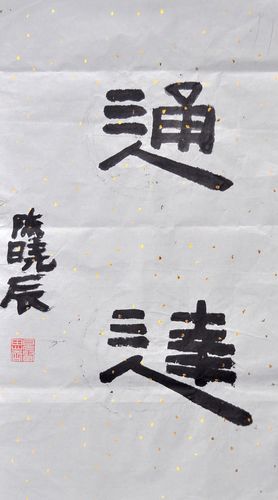 通達
陈晓辰